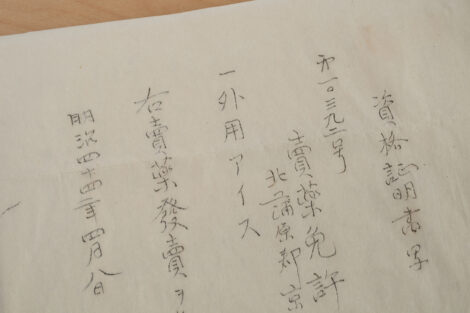 資格証明書写
第一〇三九二号
賣藥免許
北蒲原郡京
一外用アイス
右賣藥發賣ヲ
明治四十四年四月八日